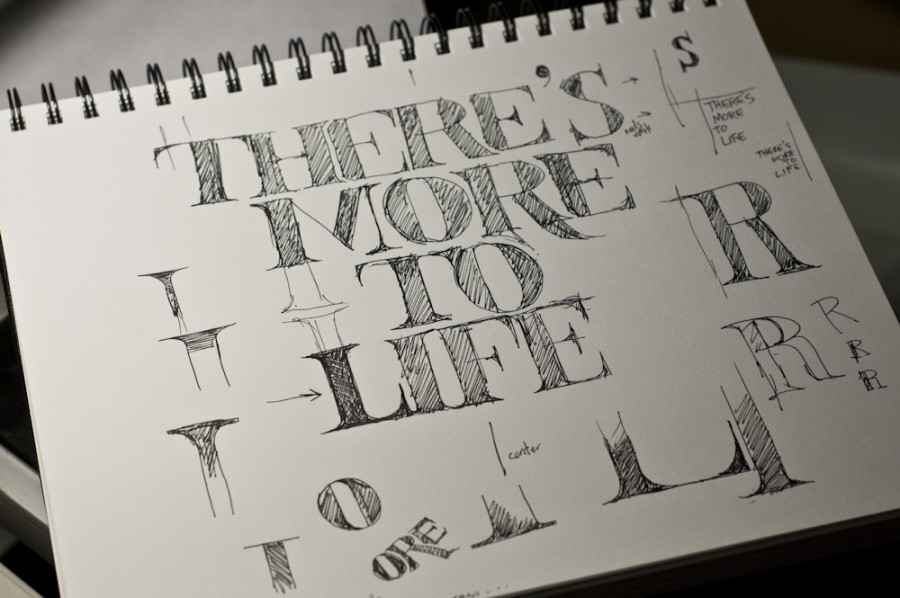 THERE'S
MORE
TO
LIFE
S
THERE'S
MORE
TO
LIFE
THERE'S
MORE
TO
LIFE
R
R
R
R
R
center
O
ORE
T